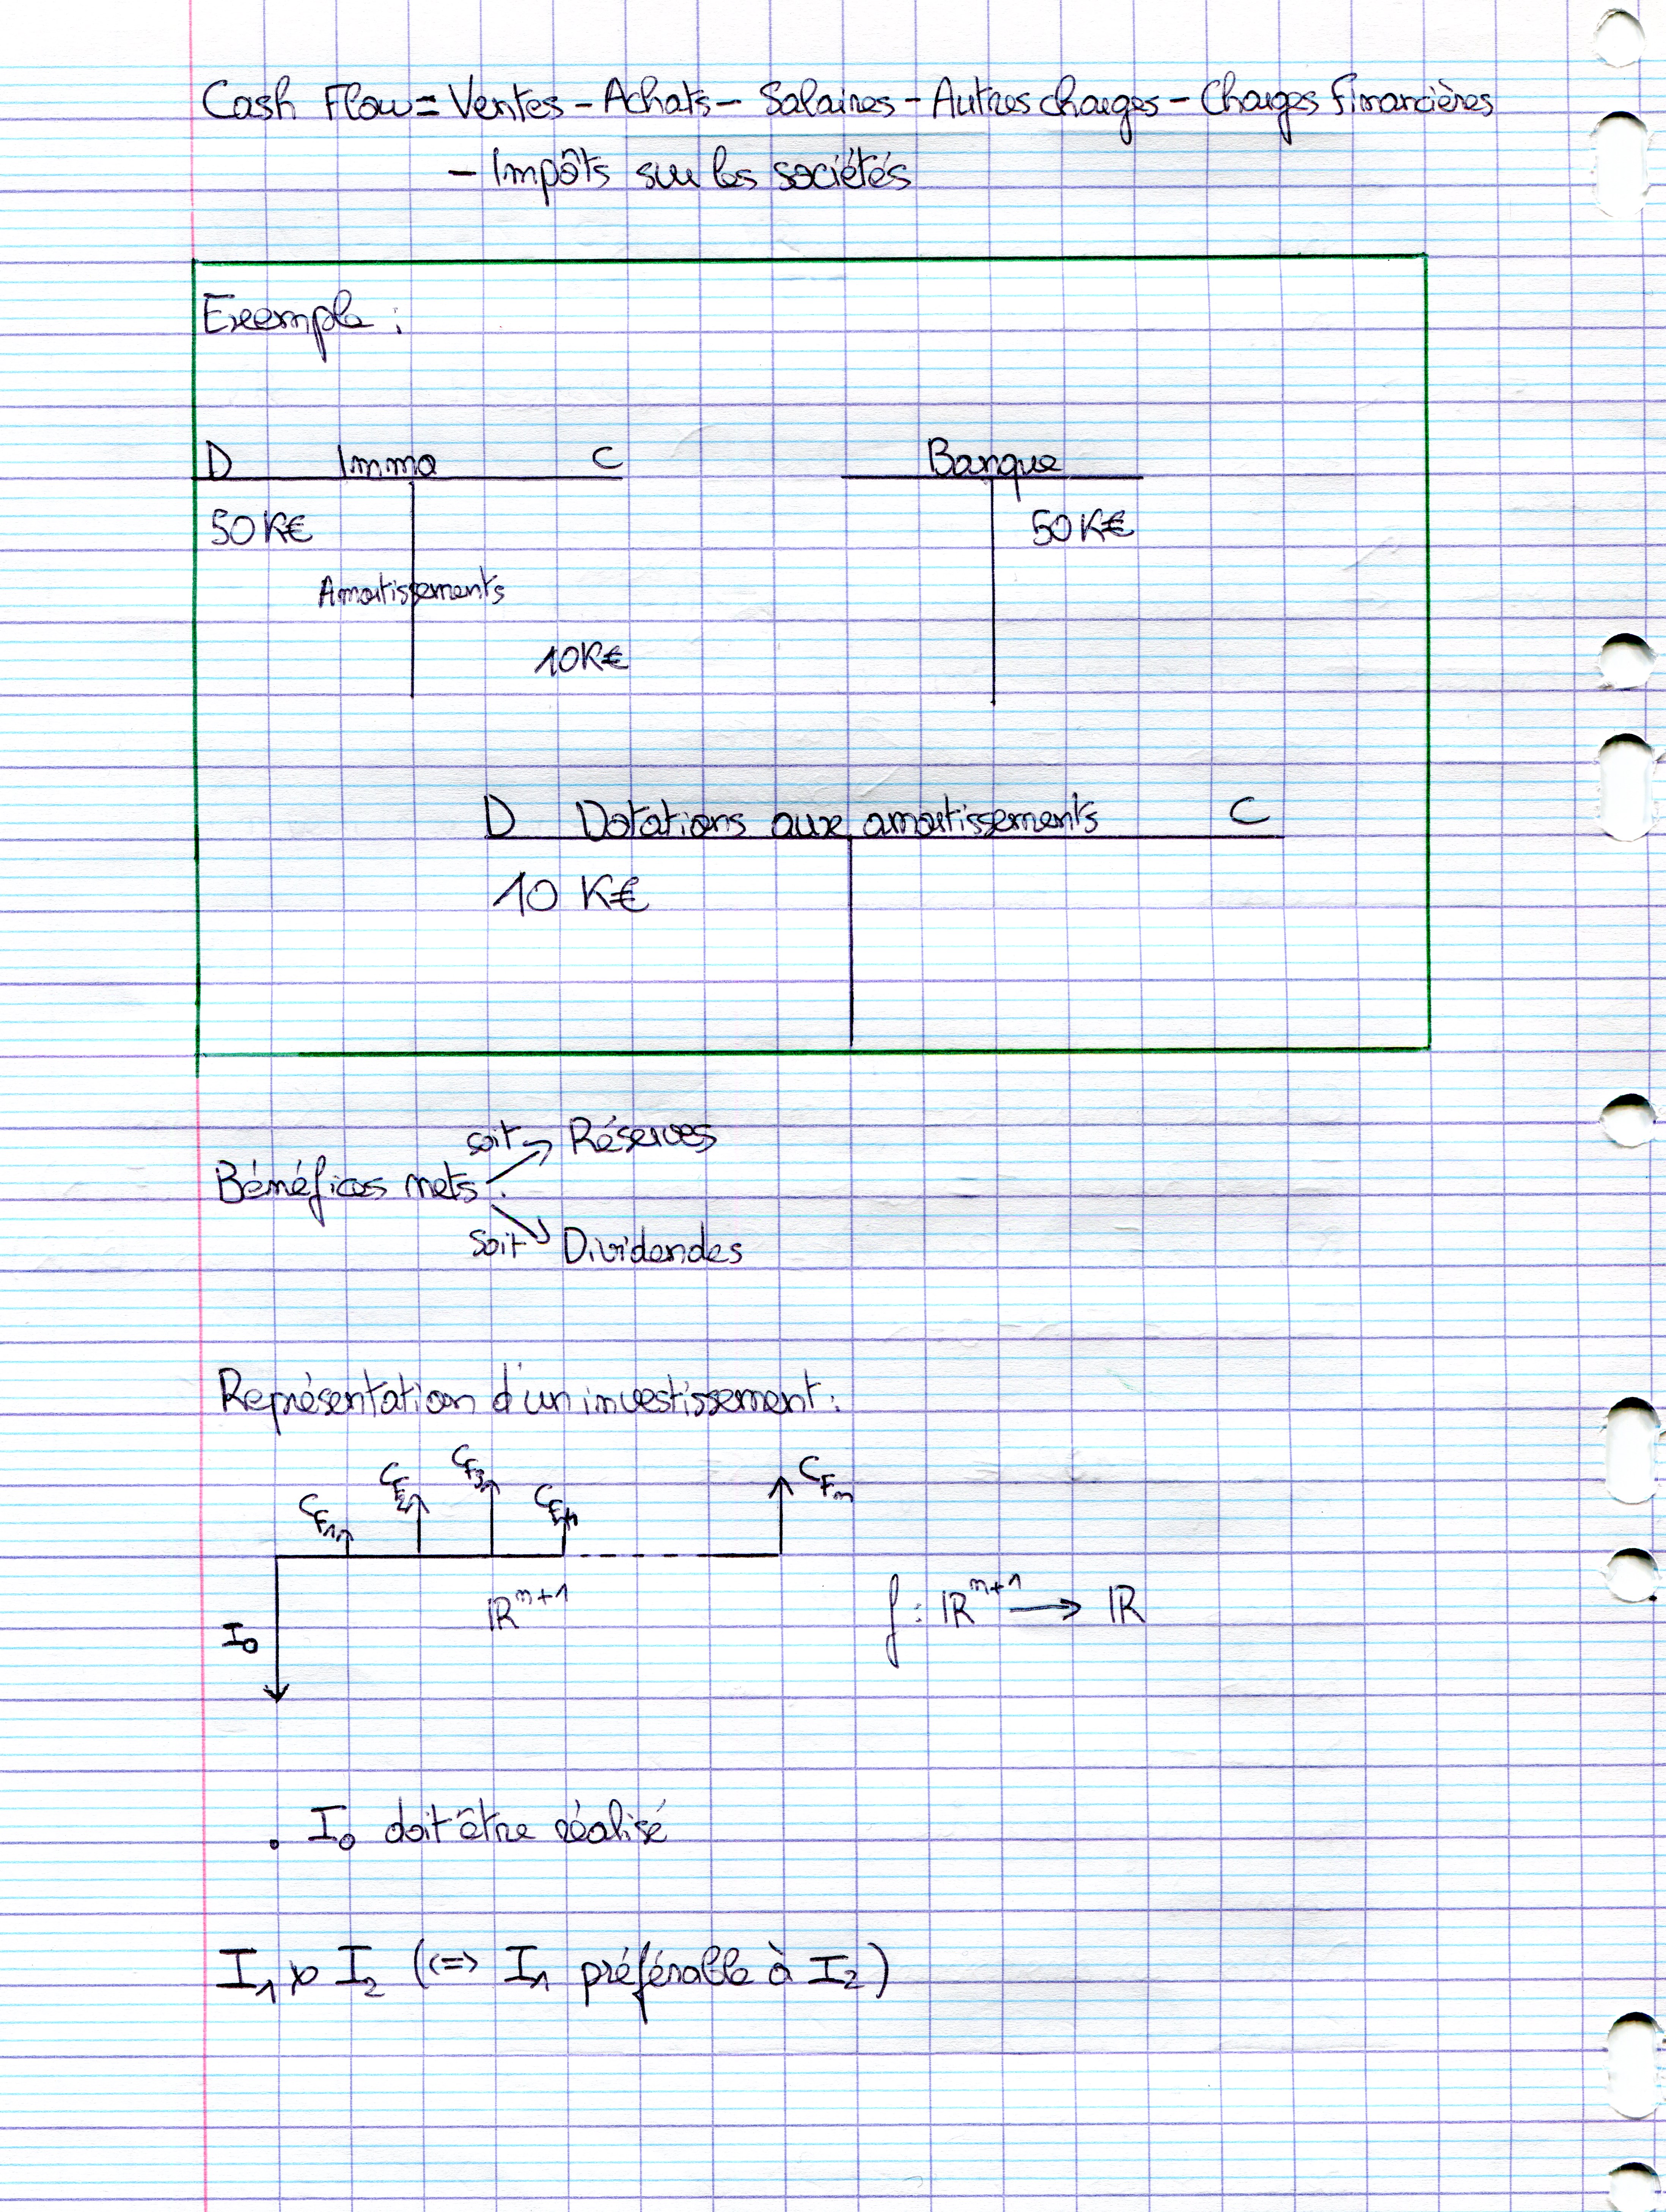 Cash Flow = Ventes - Achats - Salaires - Autres charges - Charges financières
- Impôts sur les sociétés
Exemple :
D Immo C
Banque
50 K€
50 K€
Amortissements
10 K€
D Dotations aux amortissements C
10 K€
soit → Réserves
Bénéfices nets :
soit → Dividendes
Représentation d'un investissement :
CF1 CF2 CF3 CF4 CFn
I0
ℝ^(n+1)
f : ℝ^(n+1) → ℝ
. I0 doit être réalisé
I1 ≻ I2 (<=> I1 préférable à I2)